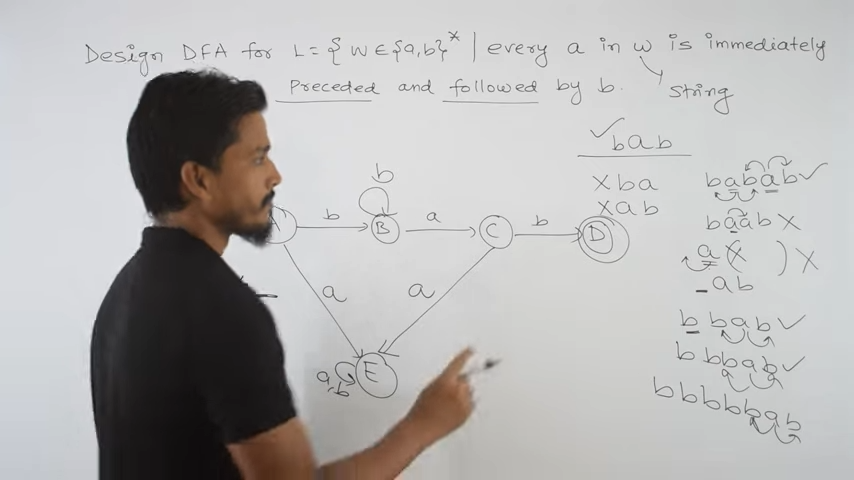 Design DFA for L = { W ∈ {a,b}* | every a in w is immediately
Preceded and followed by b.
String
✓ bab
X ba
X ab
babab ✓
baab X
a( ) X
_ab
bbab ✓
bbbab ✓
bbbbbab
b
b
B
a
C
b
D
a
a
a,b
E